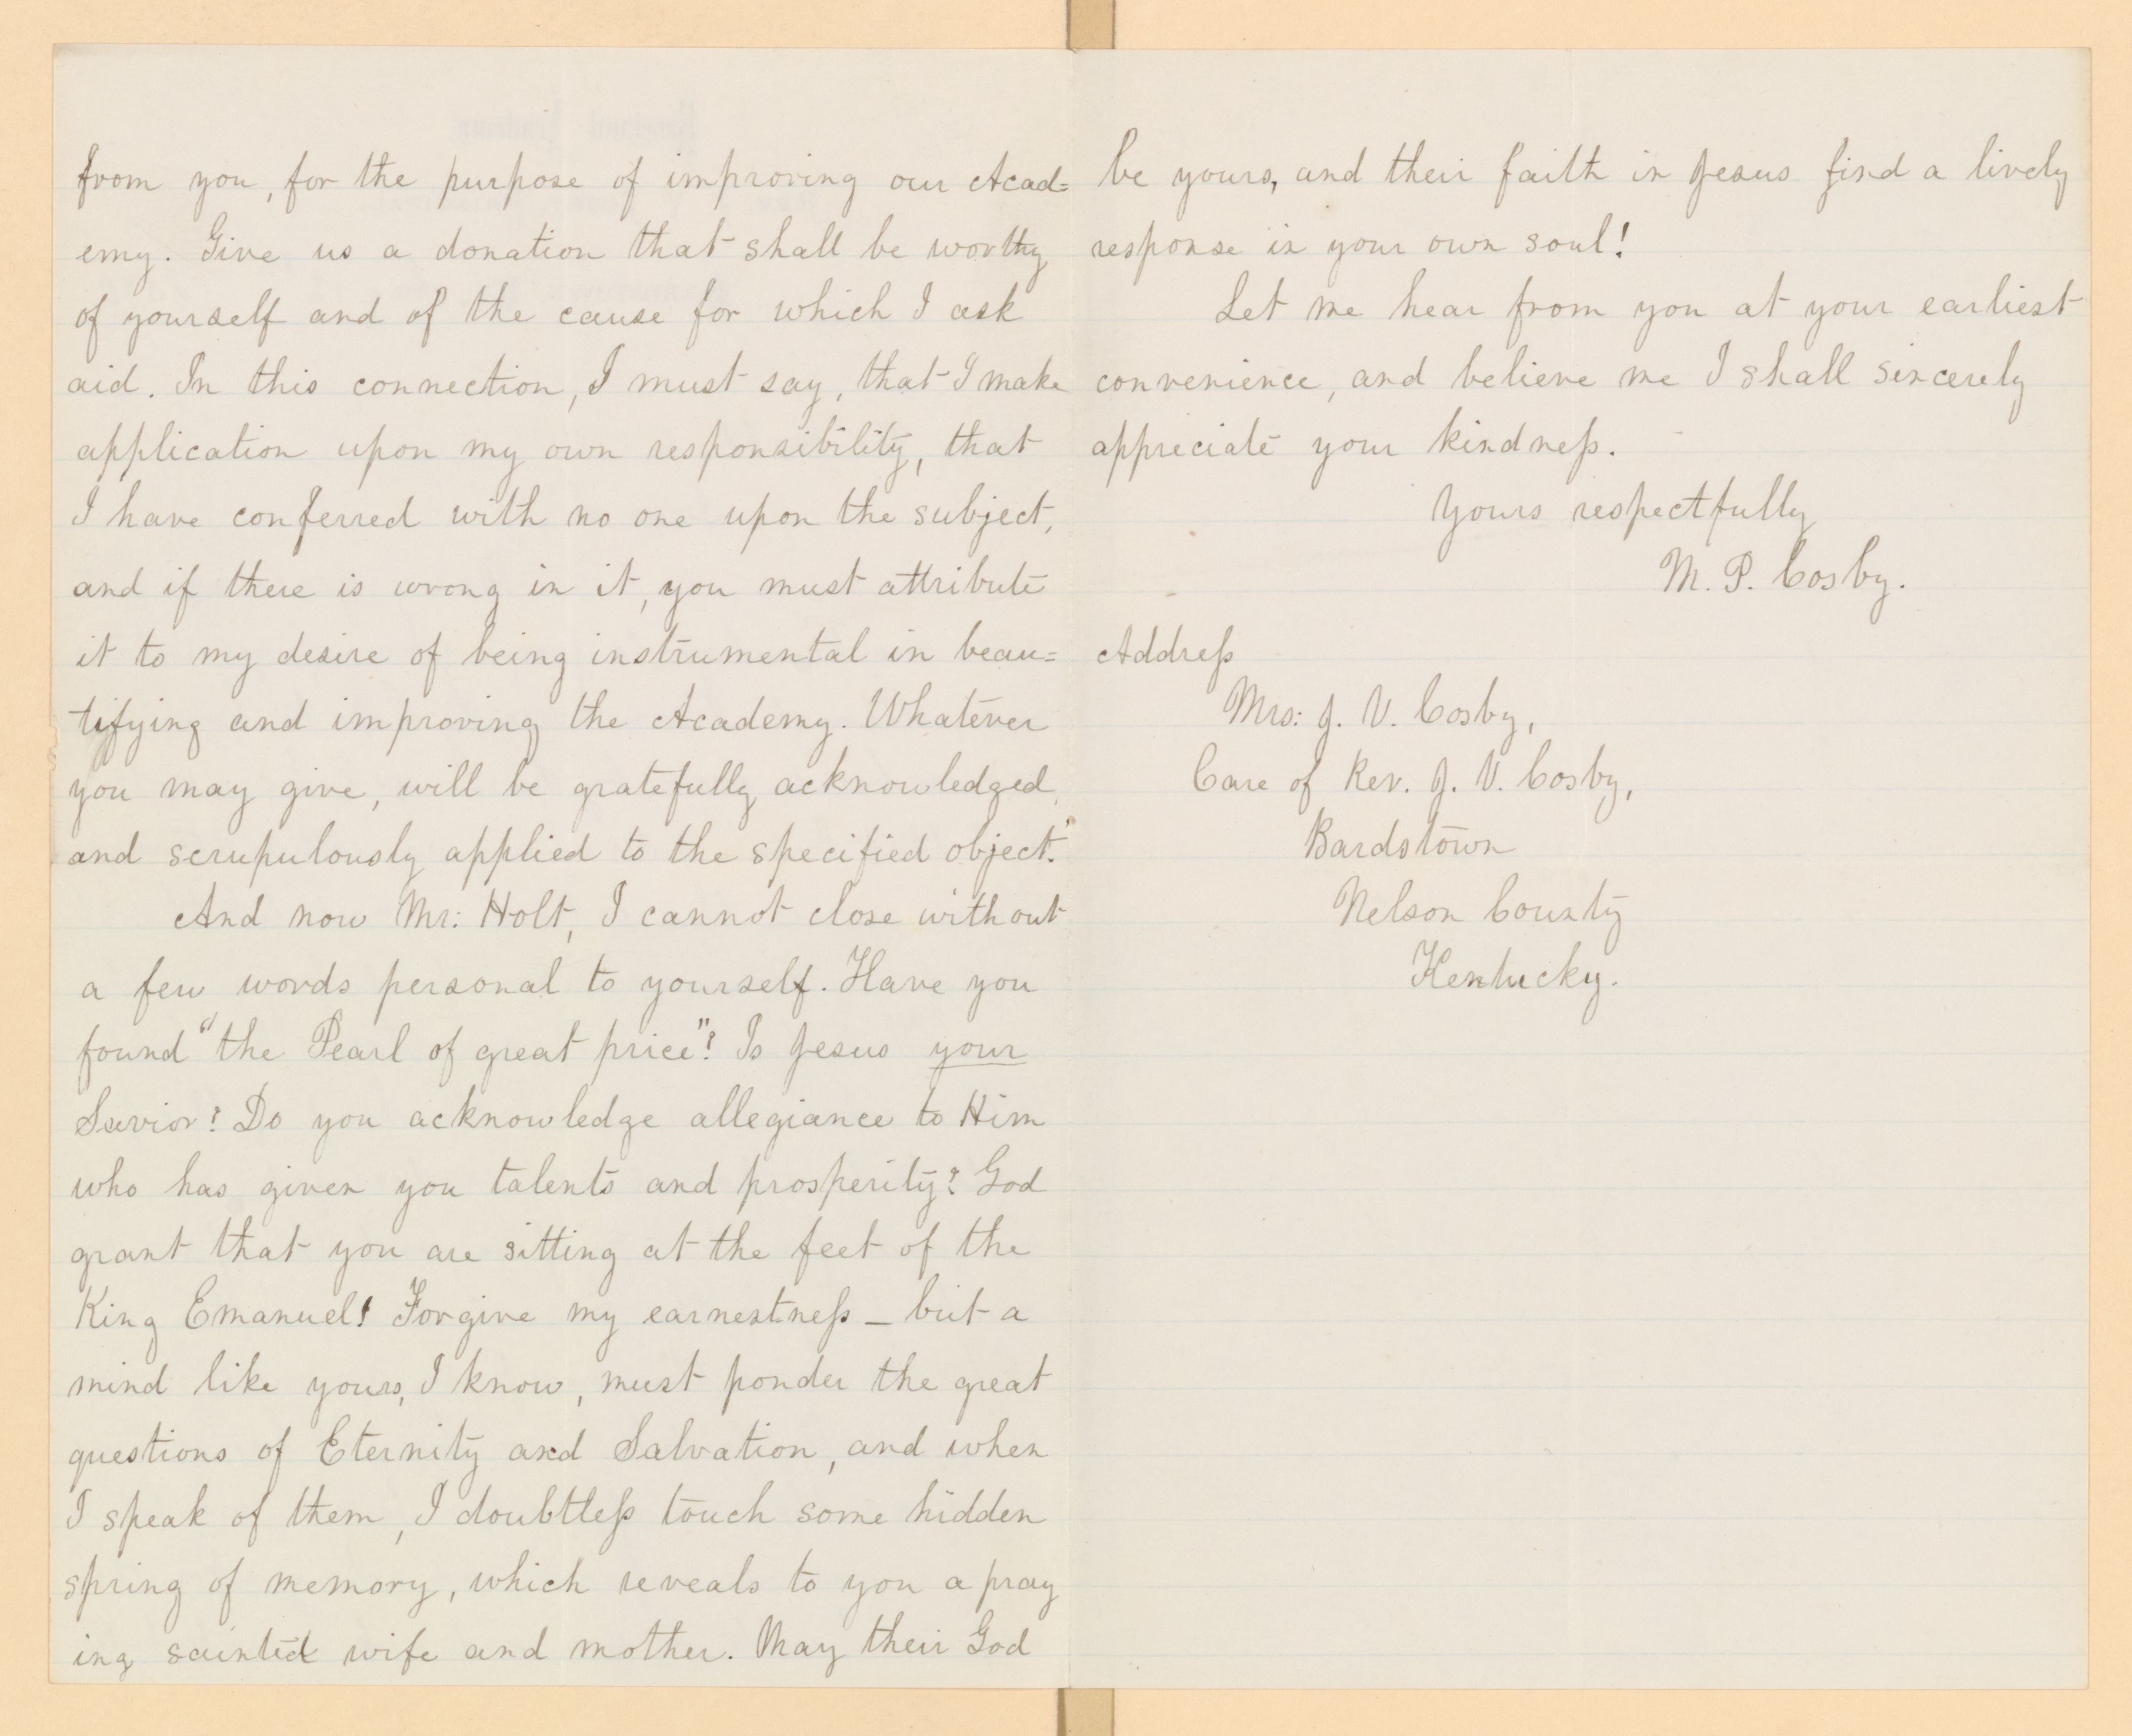 from you, for the purpose of improving our Acad=
emy. Give us a donation that shall be worthy
of yourself and of the cause for which I ask
aid. In this connection, I must say, that I make
application upon my own responsibility, that
I have conferred with no one upon the subject,
and if there is wrong in it, you must attribute
it to my desire of being instrumental in beau=
tifying and improving the Academy. Whatever
you may give, will be gratefully acknowledged,
and scrupulously applied to the specified object.
And now Mr: Holt, I cannot close without
a few words personal to yourself. Have you
found "the Pearl of great price"? Is Jesus your
Savior? Do you acknowledge allegiance to Him
who has given you talents and prosperity? God
grant that you are sitting at the feet of the
King Emanuel! Forgive my earnestneſs – but a
mind like yours, I know, must ponder the great
questions of Eternity and Salvation, and when
I speak of them, I doubtleſs touch some hidden
spring of memory, which reveals to you a pray
ing sainted wife and mother. May their God
be yours, and their faith in Jesus find a lively
response in your own soul!
Let me hear from you at your earliest
convenience, and believe me I shall sincerely
appreciate your kindneſs.
Yours respectfully
M. P. Cosby.
Addreſs
Mrs: J. V. Cosby,
Care of Rev. J. V. Cosby,
Bardstown
Nelson County
Kentucky.